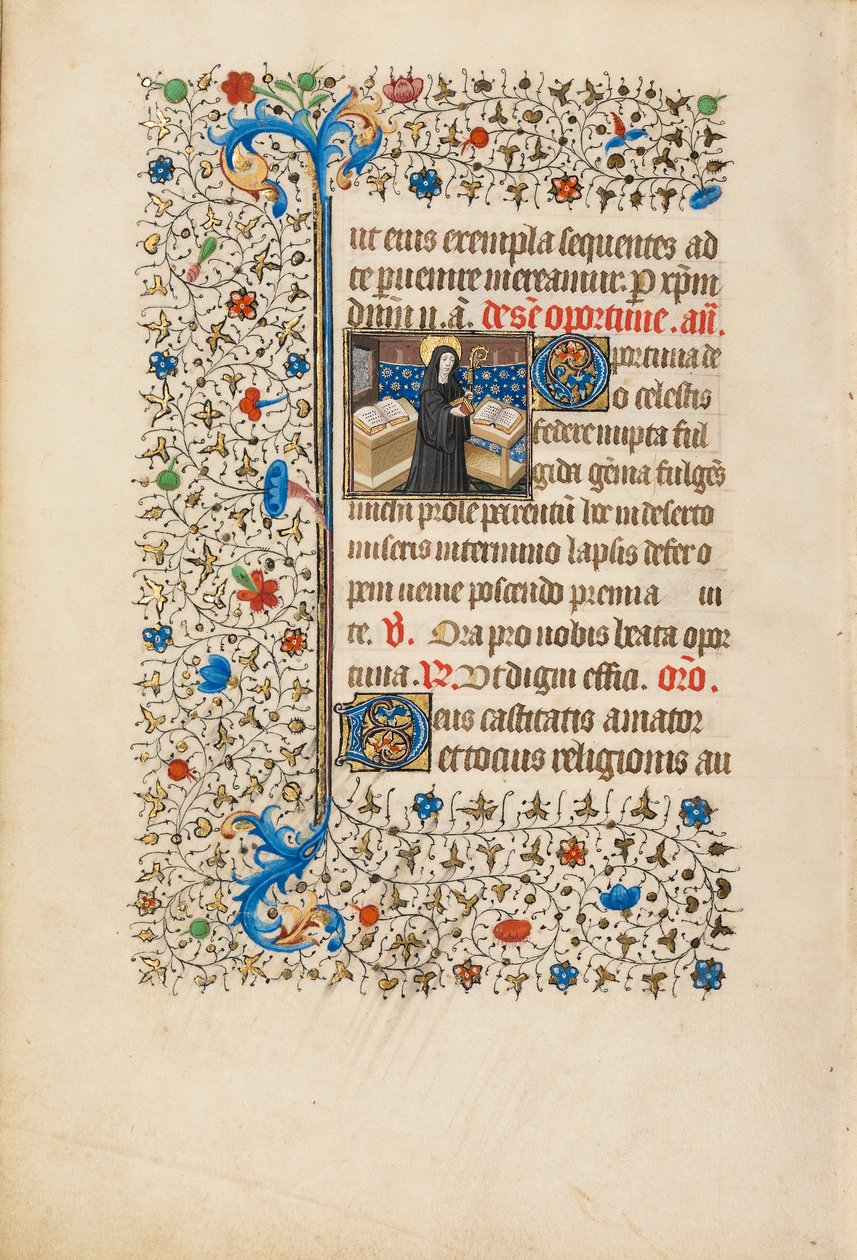 ut eius exempla sequentes ad
te puenire mereamur. P xpm
dnm n. a. de sce oportune. añ.
Oportuna de
o celestis
federe nupta ful
gida gema fulges
michi prole parentu hoc in deserto
miseris in termino lapsis defer o
pem ueni poscendo premia in
te. V. Ora pro nobis beata opor
tuna. R. Vt digni effici. oro.
Deus castitatis amator
et tocius religionis au